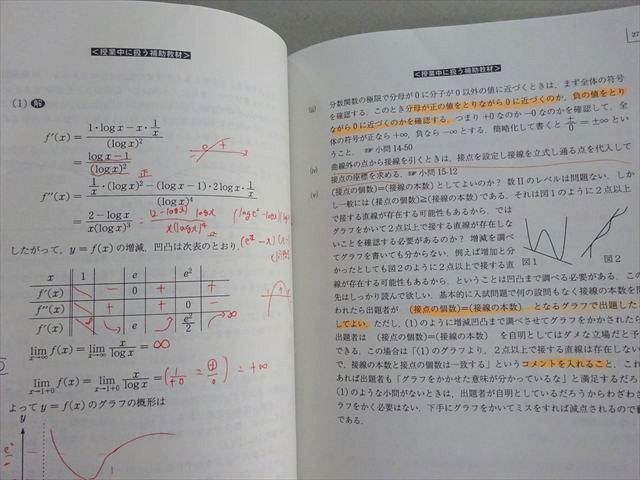 <授業中に扱う補助教材>
(1) 解
f'(x) = (1・log x − x・1/x)/(log x)²
= (log x−1)/(log x)²
f''(x) = (1/x・(log x)²−(log x−1)・2log x・1/x)/(log x)⁴
= (2−log x)/x(log x)³
したがって，y＝f(x)の増減，凹凸は次表のとおり，
x 1 e e²
f'(x) − 0 + + +
f''(x) + + + 0 −
f(x) e e²/2
lim x→∞ f(x) = lim x→∞ x/log x = ∞
lim x→1+0 f(x) = lim x→1+0 x/log x = (1/+0 = ⊕/0) = +∞
よってy＝f(x)のグラフの概形は
y
27
<授業中に扱う補助教材>
(iii) 分数関数の極限で分母が0に分子が0以外の値に近づくときは，まず全体の符号
を確認する．このとき分母が正の値をとりながら0に近づくのか，負の値をとり
ながら0に近づくのかを確認する．つまり+0なのか−0なのかを確認して，全
体の符号が正なら+∞，負なら−∞とする．簡略化して書くと +/+0 = +∞という
こと．☞小問14-50
(iv) 曲線外の点から接線を引くときは，接点を設定し接線を立式し通る点を代入して
接点の座標を求める．☞小問15-12
(v) (接点の個数)＝(接線の本数)としてよいのか？数Ⅱのレベルは問題ない．しか
し一般には(接点の個数)≧(接線の本数)である．それは図1のように2点以上
で接する直線が存在する可能性もあるから，では
グラフをかいて2点以上で接する直線が存在しな
いことを確認する必要があるのか？ 増減を調べ
てグラフを書いても分からない．例えば増減と分
かったとしても図2のように2点以上で接する直
図1
図2
線が存在する可能性もあるから，ということは凹凸まで調べる必要がある．この
先はしっかり読んで欲しい．基本的に入試問題で何の設問もなく接線の本数を問
われたら出題者が (接点の個数)＝(接線の本数) となるグラフで出題した
としてよい．ただし，(1)のように増減凹凸まで調べさせてグラフをかかされたら
出題者は (接点の個数)＝(接線の本数) を自明としてはダメな立場だと予
できる．この場合は「(1)のグラフより，2点以上で接する直線は存在しない
で，接線の本数と接点の個数は一致する」というコメントを入れること，これ
あれば出題者も「グラフをかかせた意味が分かっているな」と満足するだろ
(1)のような小問がないときは，出題者が自明としているだろうからわざわざ
ラフをかく必要はない．下手にグラフをかいてミスをすれば減点されるので
である．